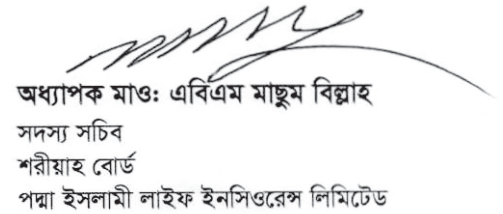 অধ্যাপক মাও: এবিএম মাছুম বিল্লাহ
সদস্য সচিব
শরীয়াহ বোর্ড
পদ্মা ইসলামী লাইফ ইনসিওরেন্স লিমিটেড